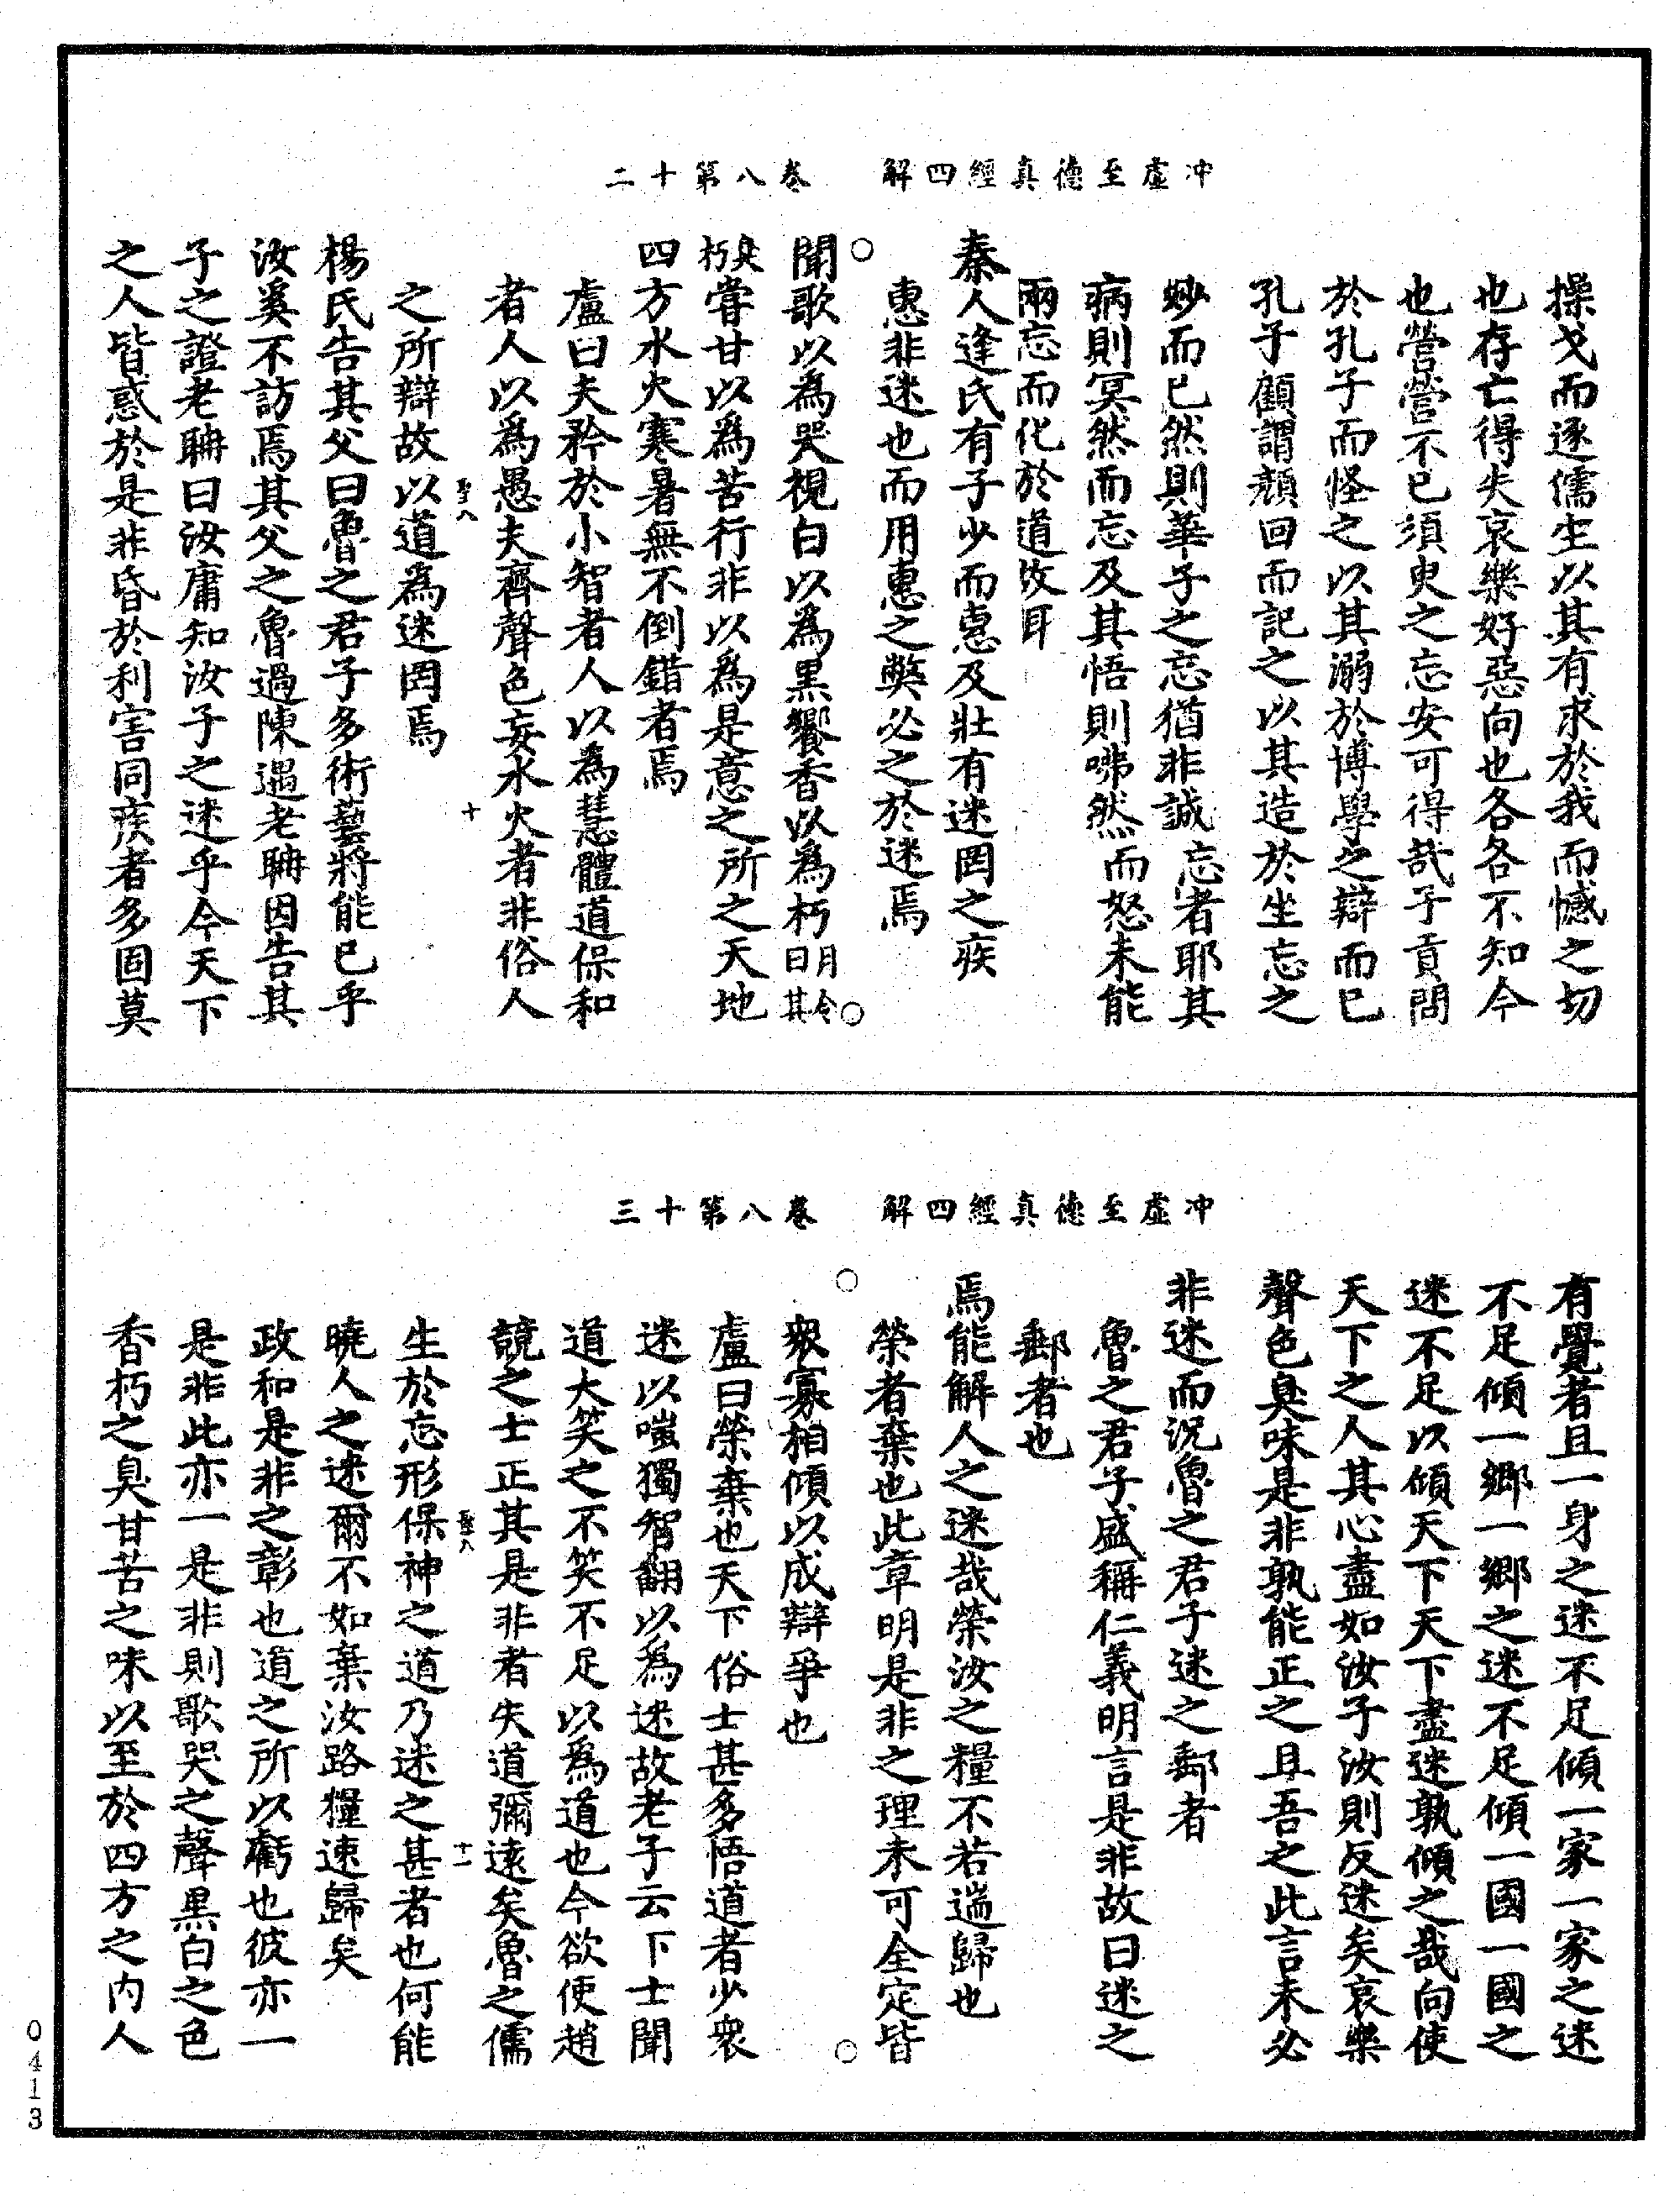 冲虛至德真經四解　卷八第十二
操戈而逐儒生以其有求於我而憾之切
也存亡得失哀樂好惡向也各各不知今
也營營不已須臾之忘安可得哉子貢問
於孔子而怪之以其溺於博學之辯而已
孔子顧謂顏回而記之以其造於坐忘之
妙而已然則華子之忘猶非誠忘者耶其
病則冥然而忘及其悟則怫然而怒未能
兩忘而化於道故耳
秦人逄氏有子少而惠及壯有迷罔之疾
惠非迷也而用惠之弊必之於迷焉
聞歌以為哭視白以為黑饗香以為朽月令曰其
臭朽嘗甘以為苦行非以為是意之所之天地
四方水火寒暑無不倒錯者焉
盧曰夫矜於小智者人以為慧體道保和
者人以為愚夫齊聲色妄水火者非俗人
之所辯故以道為迷罔焉
楊氏告其父曰魯之君子多術藝將能已乎
汝奚不訪焉其父之魯過陳遇老聃因告其
子之證老聃曰汝庸知汝子之迷乎今天下
之人皆惑於是非昏於利害同疾者多固莫
冲虛至德真經四解　卷八第十三
有覺者且一身之迷不足傾一家一家之迷
不足傾一鄉一鄉之迷不足傾一國一國之
迷不足以傾天下天下盡迷孰傾之哉向使
天下之人其心盡如汝子汝則反迷矣哀樂
聲色臭味是非孰能正之且吾之此言未必
非迷而況魯之君子迷之郵者
魯之君子盛稱仁義明言是非故曰迷之
郵者也
焉能解人之迷哉榮汝之糧不若遄歸也
榮者棄也此章明是非之理未可全定皆
衆寡相傾以成辯爭也
盧曰榮棄也天下俗士甚多悟道者少衆
迷以嗤獨智翻以為迷故老子云下士聞
道大笑之不笑不足以為道也今欲使趙
競之士正其是非者失道彌遠矣魯之儒
生於忘形保神之道乃迷之甚者也何能
曉人之迷爾不如棄汝路糧速歸矣
政和是非之彰也道之所以虧也彼亦一
是非此亦一是非則歌哭之聲黑白之色
香朽之臭甘苦之味以至於四方之內人
0413